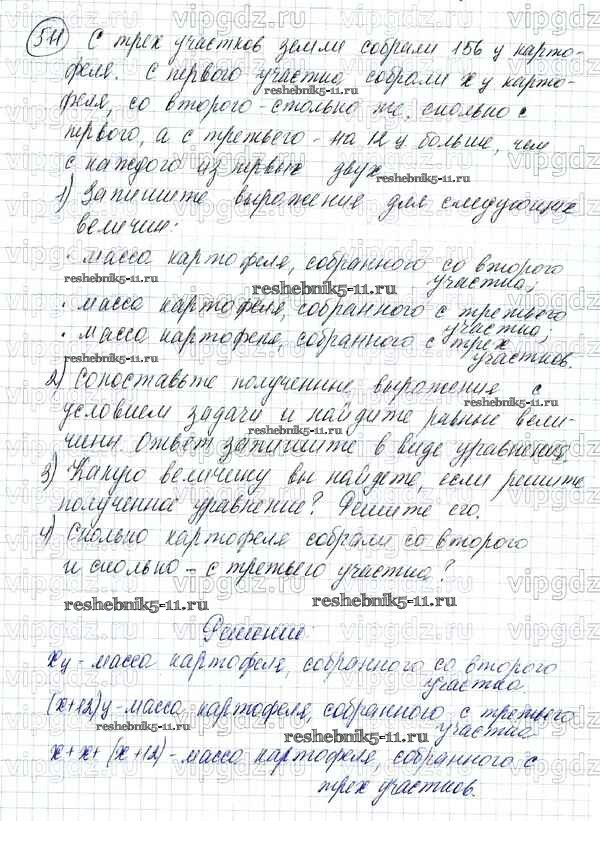 511 С трех участков земли собрали 156 ц карто-
феля. С первого участка собрали х ц карто-
феля, со второго - столько же, сколько с
первого, а с третьего - на 12 ц больше, чем
с каждого из первых двух.
1) Запишите выражения для следующих
величин:
• масса картофеля, собранного со второго
участка;
• масса картофеля, собранного с третьего
участка;
• масса картофеля, собранного с трех
участков.
2) Сопоставьте полученные выражения с
условием задачи и найдите равные вели-
чины. Ответ запишите в виде уравнения.
3) Какую величину вы найдете, если решите
полученное уравнение? Решите его.
4) Сколько картофеля собрали со второго
и сколько - с третьего участка?
Решение:
х ц - масса картофеля, собранного со второго
участка
(х+12) ц - масса картофеля, собранного с третьего
участка
х+х+(х+12) - масса картофеля, собранного с
трех участков.
vipgdz
reshebnik5-11.ru